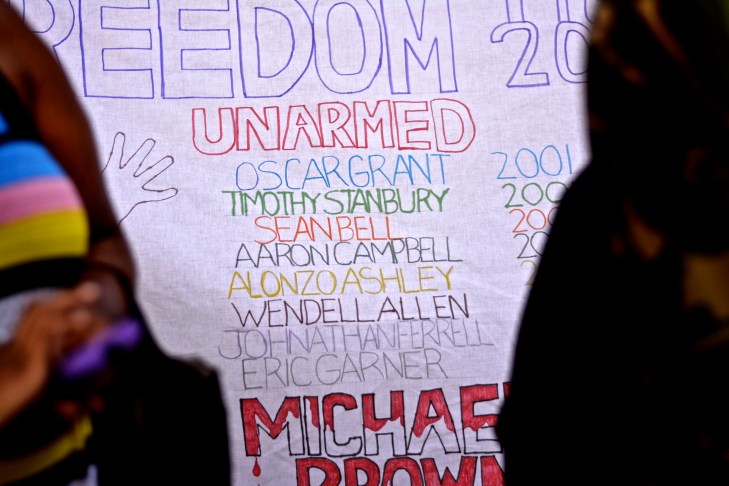 REEDOM 20
UNARMED
OSCAR GRANT 2001
TIMOTHY STANBURY 200
SEAN BELL 20
AARON CAMPBELL 20
ALONZO ASHLEY
WENDELL ALLEN
JOHNATHAN FERRELL
ERIC GARNER
MICHAEL
BROWN